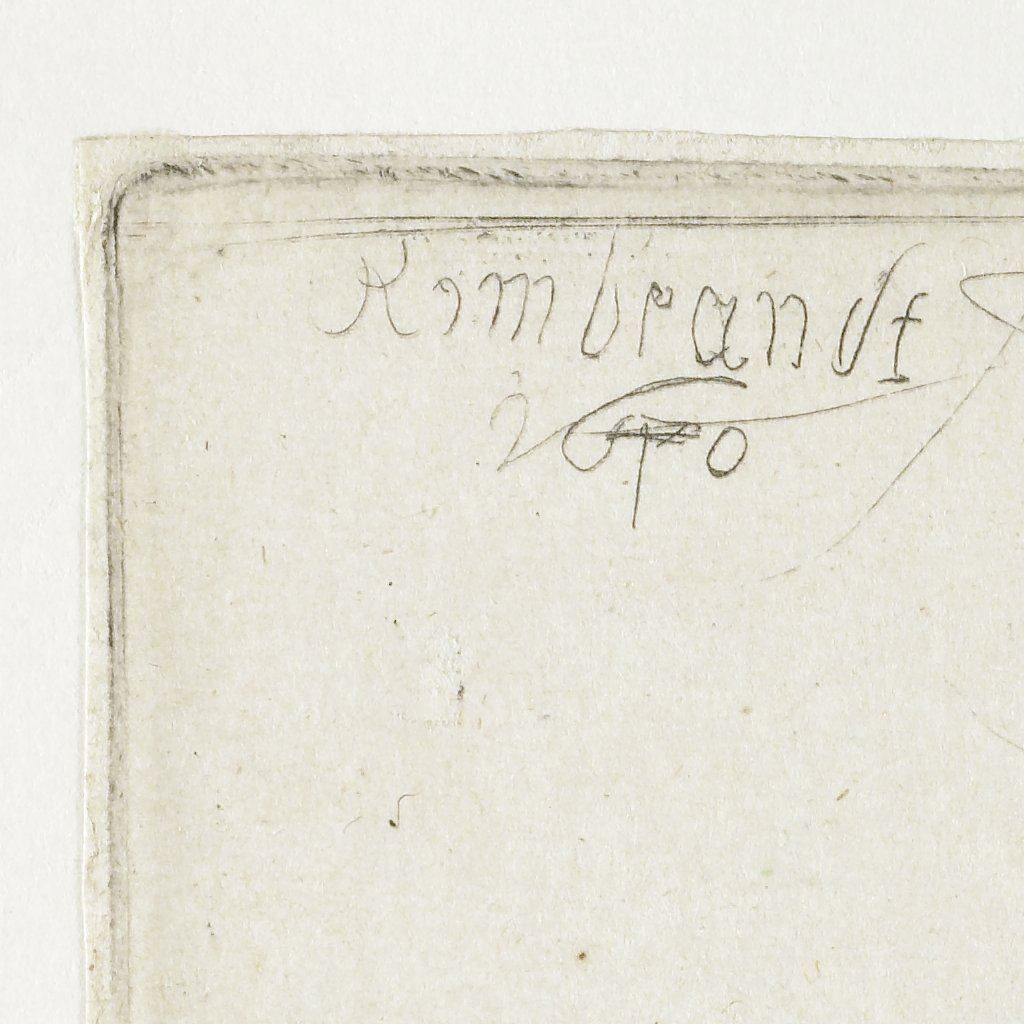 Rembrandt f
1640